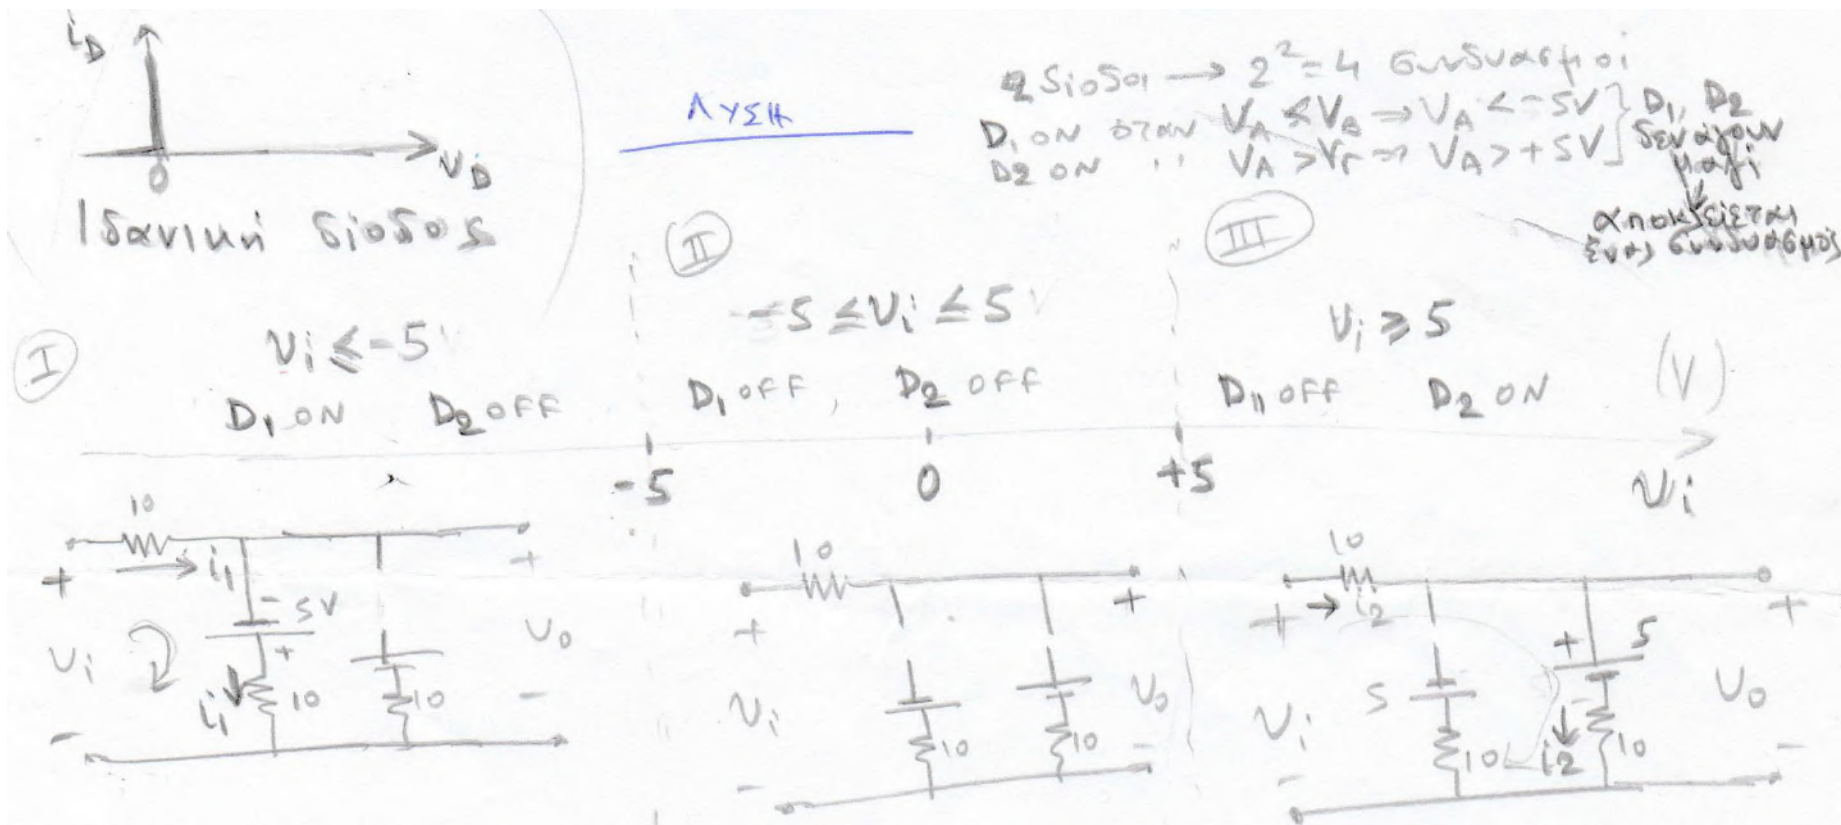 i_D
0
v_D
Ιδανική δίοδος
ΛΥΣΗ
2 δίοδοι → 2² = 4 συνδυασμοί
D₁ ON όταν V_A < V_B ⇒ V_A < -5V
D₂ ON '' V_A > V_Γ ⇒ V_A > +5V
D₁, D₂
δεν άγουν
μαζί
↓
αποκλείεται
ένας συνδυασμός
I
v_i ≤ -5
D₁ ON D₂ OFF
II
-5 ≤ v_i ≤ 5
D₁ OFF, D₂ OFF
III
v_i ≥ 5
D₁ OFF D₂ ON
(V)
-5 0 +5 v_i
10
i₁
+
- 5V
+
v_i
i₁
10
10
+
v_o
-
-
10
+
v_i
-
10
10
+
v_o
-
10
i₂
+
v_i
-
5
10
+ 5
i₂
10
+
v_o
-